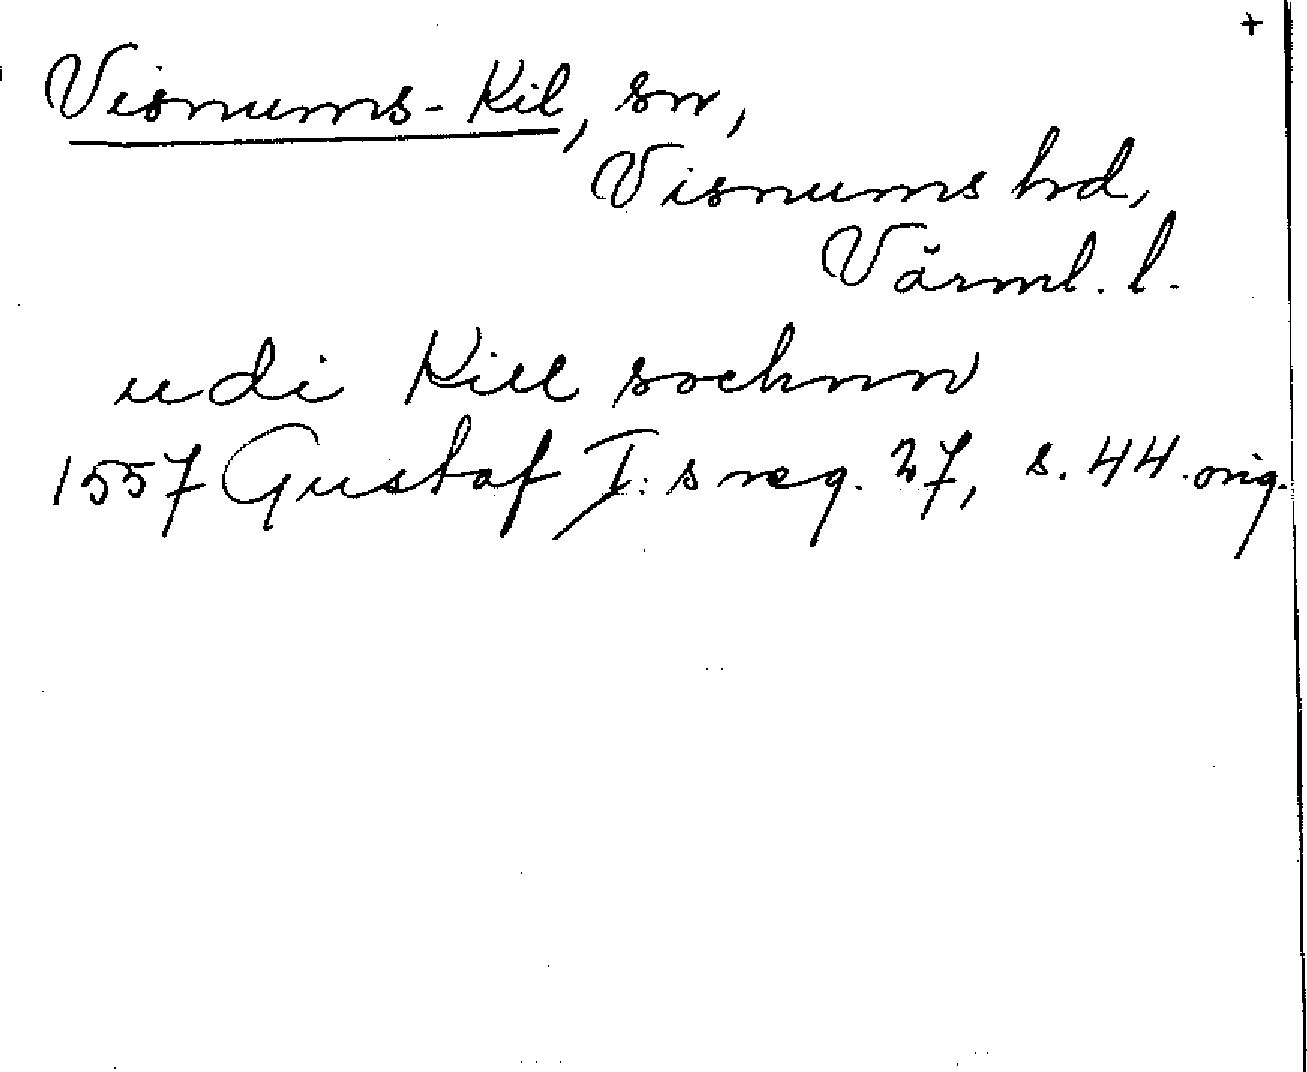 +
Visnums-Kil, sn,
Visnums hd,
Värml. l.
udi Kill sochnn
1557 Gustaf I:s reg. 27, s. 44. orig.